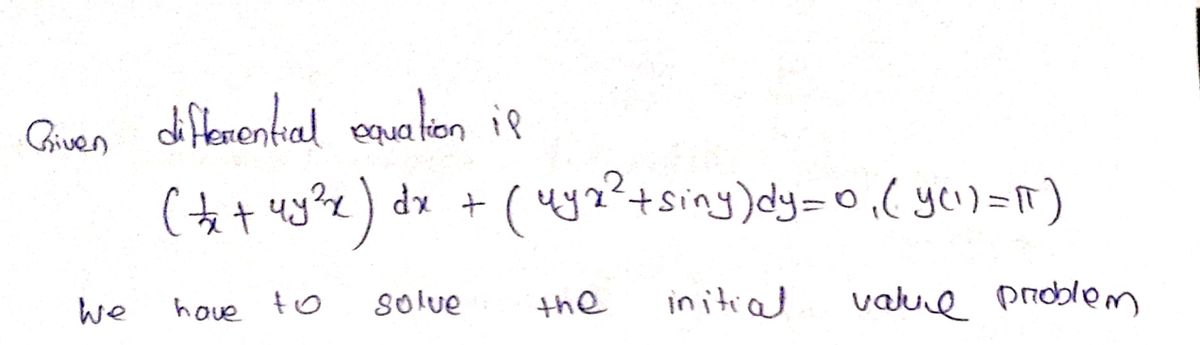 Given differential equation is
(1/x + 4y²x) dx + (4yx² + siny)dy=0, (y(1)=π)
We have to solve the initial value problem